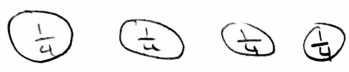 1/4 1/4 1/4 1/4